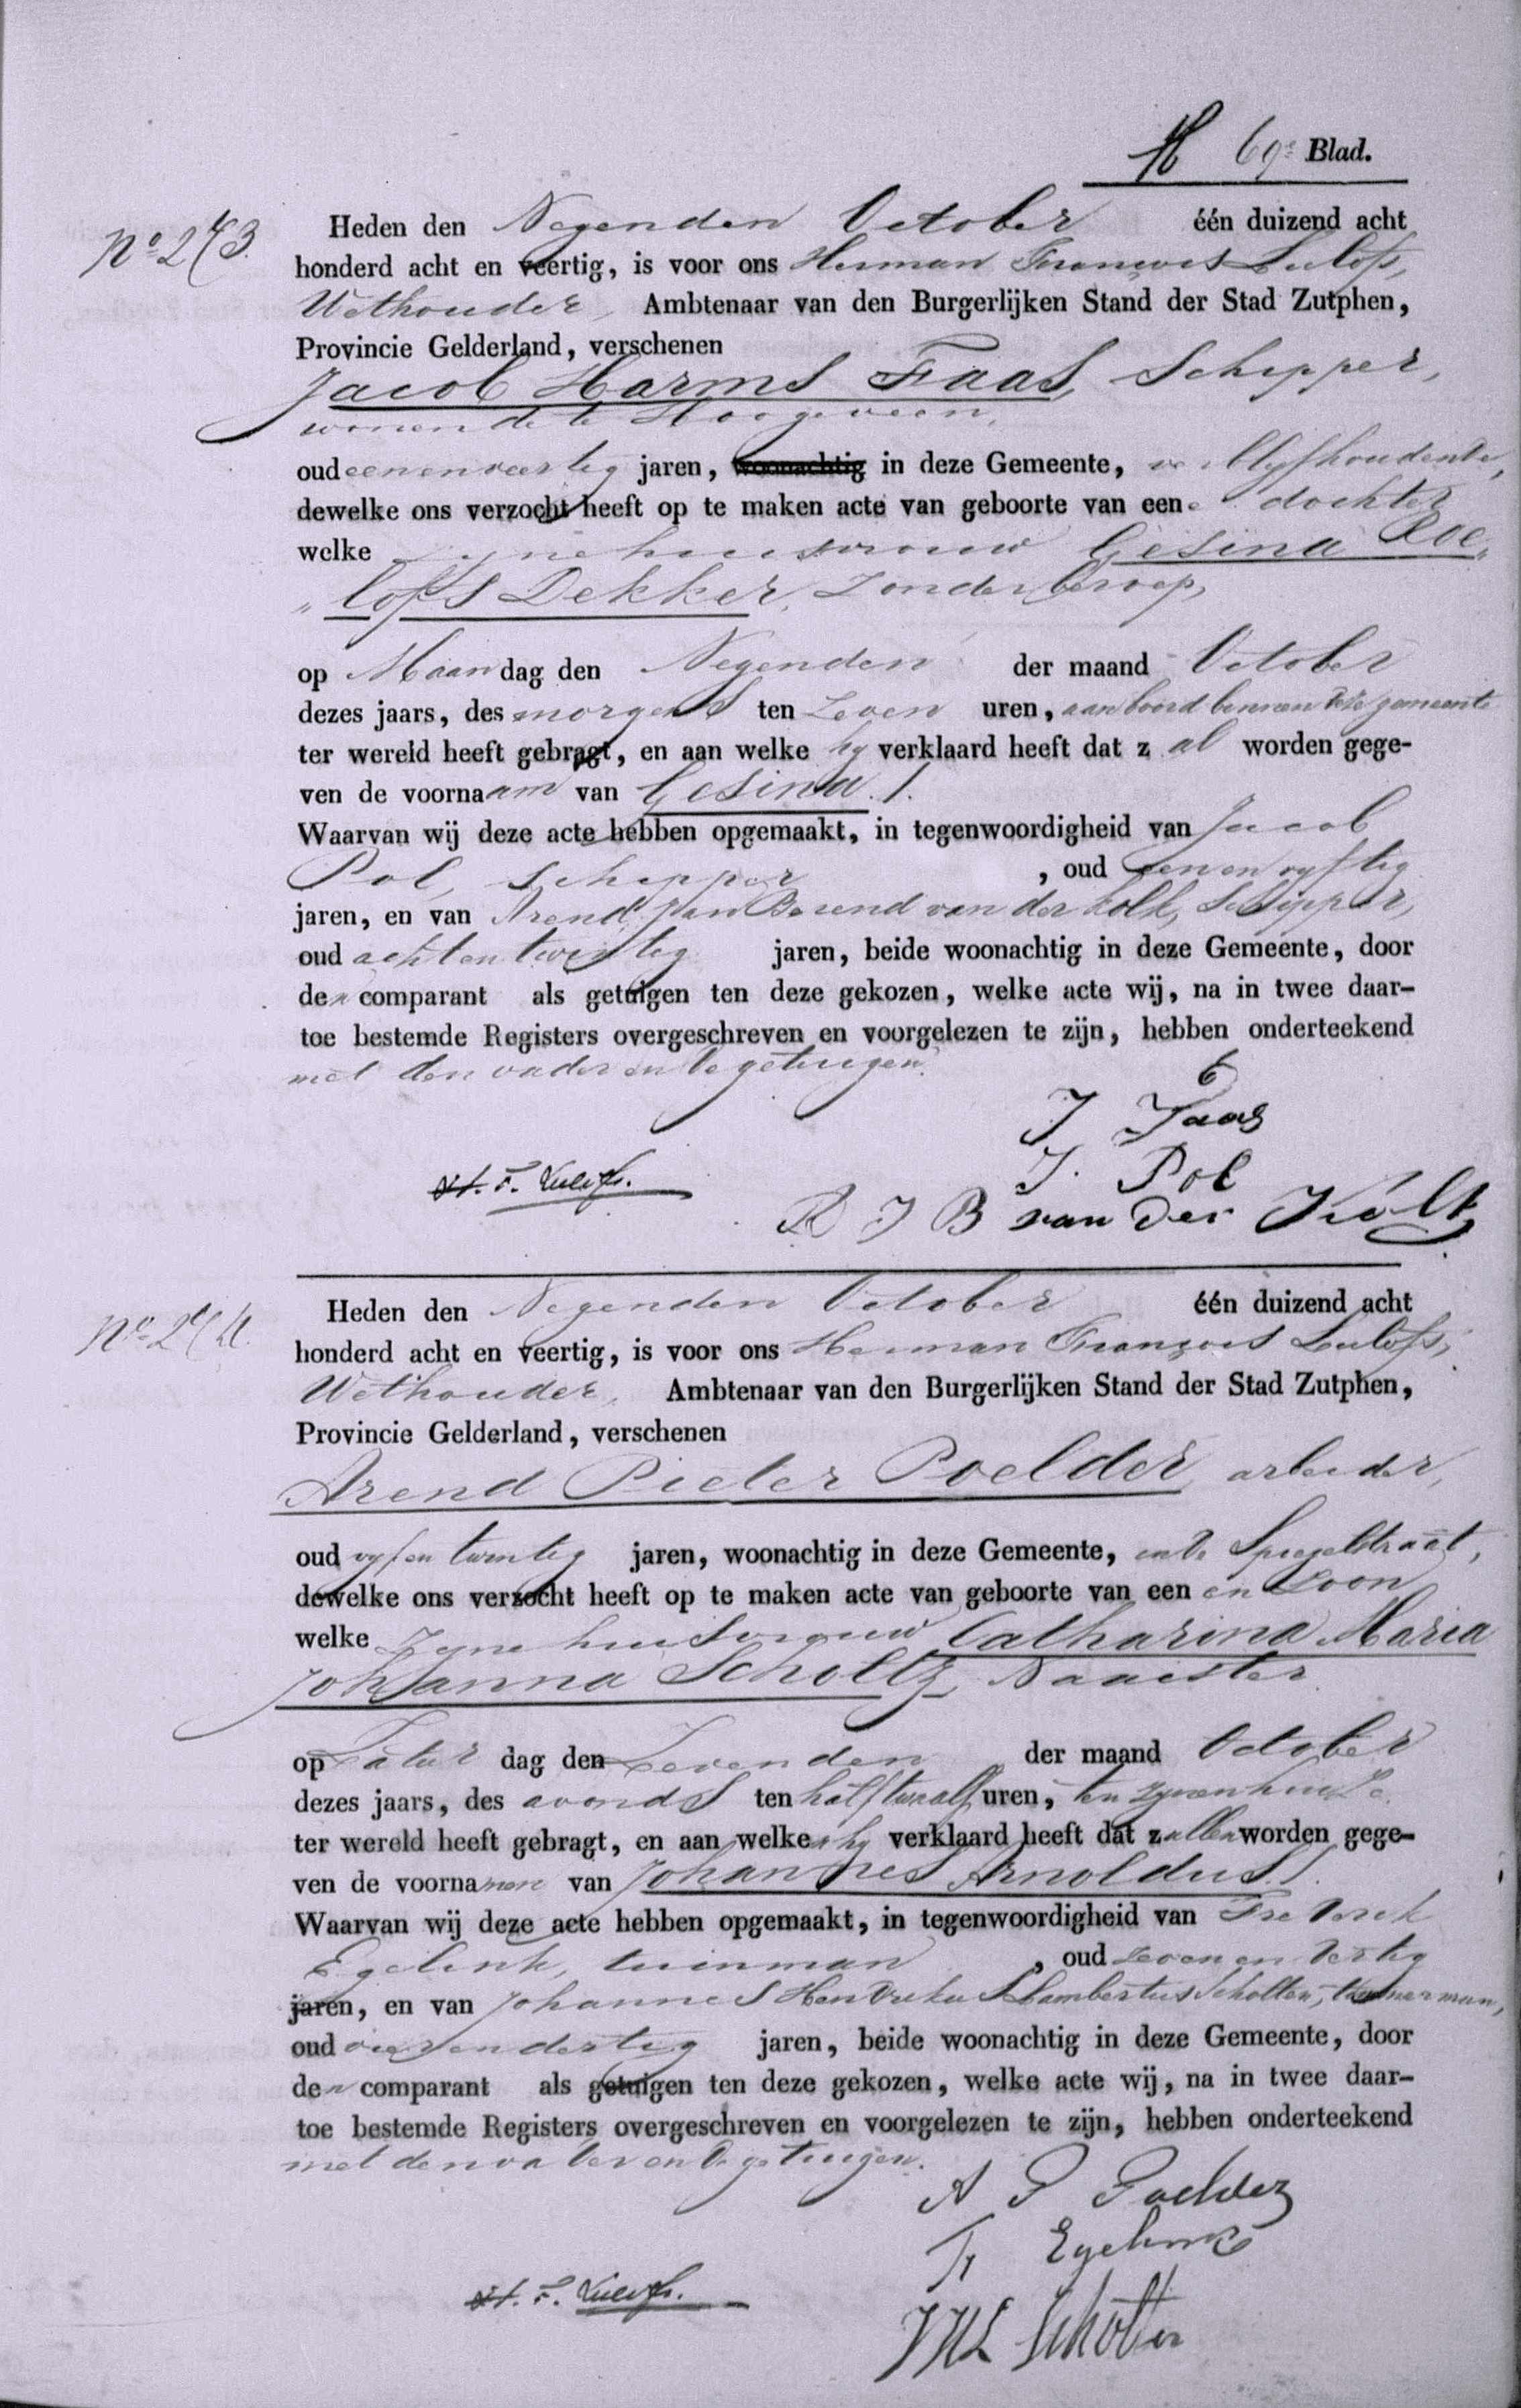 69e Blad.
No 273.
Heden den Negenden October één duizend acht
honderd acht en veertig, is voor ons Herman François Lulofs,
Wethouder, Ambtenaar van den Burgerlijken Stand der Stad Zutphen,
Provincie Gelderland, verschenen
Jacob Harms Faas, Schipper,
wonende te Hoogeveen,
oud eenenveertig jaren, woonachtig in deze Gemeente, verblyfhoudende,
dewelke ons verzocht heeft op te maken acte van geboorte van eene dochter
welke zyne huisvrouw Gesina Roe„
„lofs Dekker, zonder beroep,
op Maandag den Negenden der maand October
dezes jaars, des morgens ten zeven uren, aan boord binnen deze gemeente
ter wereld heeft gebragt, en aan welke hy verklaard heeft dat zal worden gege-
ven de voornaam van Gesina./.
Waarvan wij deze acte hebben opgemaakt, in tegenwoordigheid van Jacob
Pol, Schipper, oud eenenvyftig
jaren, en van Arend Jan Berend van der Kolk, Schipper,
oud achtentwintig jaren, beide woonachtig in deze Gemeente, door
den comparant als getuigen ten deze gekozen, welke acte wij, na in twee daar-
toe bestemde Registers overgeschreven en voorgelezen te zijn, hebben onderteekend
met den vader en de getuigen.
J Faas
J. Pol
H. F. Lulofs.
A J B van der Kolk
No 274.
Heden den Negenden October één duizend acht
honderd acht en veertig, is voor ons Herman François Lulofs,
Wethouder, Ambtenaar van den Burgerlijken Stand der Stad Zutphen,
Provincie Gelderland, verschenen
Arend Pieter Poelder, arbeider,
oud vyfentwintig jaren, woonachtig in deze Gemeente, in de Spiegelstraat,
dewelke ons verzocht heeft op te maken acte van geboorte van een en Zoon
welke Zyne huisvrouw Catharina Maria
Johanna Scholtz, Naaister
op Zaturdag den Zevenden der maand October
dezes jaars, des avonds ten half twaalf uren, ten zynen huize
ter wereld heeft gebragt, en aan welken hy verklaard heeft dat zullen worden gege-
ven de voornamen van Johannes Arnoldus./.
Waarvan wij deze acte hebben opgemaakt, in tegenwoordigheid van Frederik
Egelink, tuinman, oud zevenendertig
jaren, en van Johannes Hendrikus Lambertus Scholten, timmerman,
oud vierendertig jaren, beide woonachtig in deze Gemeente, door
den comparant als getuigen ten deze gekozen, welke acte wij, na in twee daar-
toe bestemde Registers overgeschreven en voorgelezen te zijn, hebben onderteekend
met den vader en de getuigen.
A P Poelder
Fr Egelink
H. F. Lulofs.
JHL Scholten